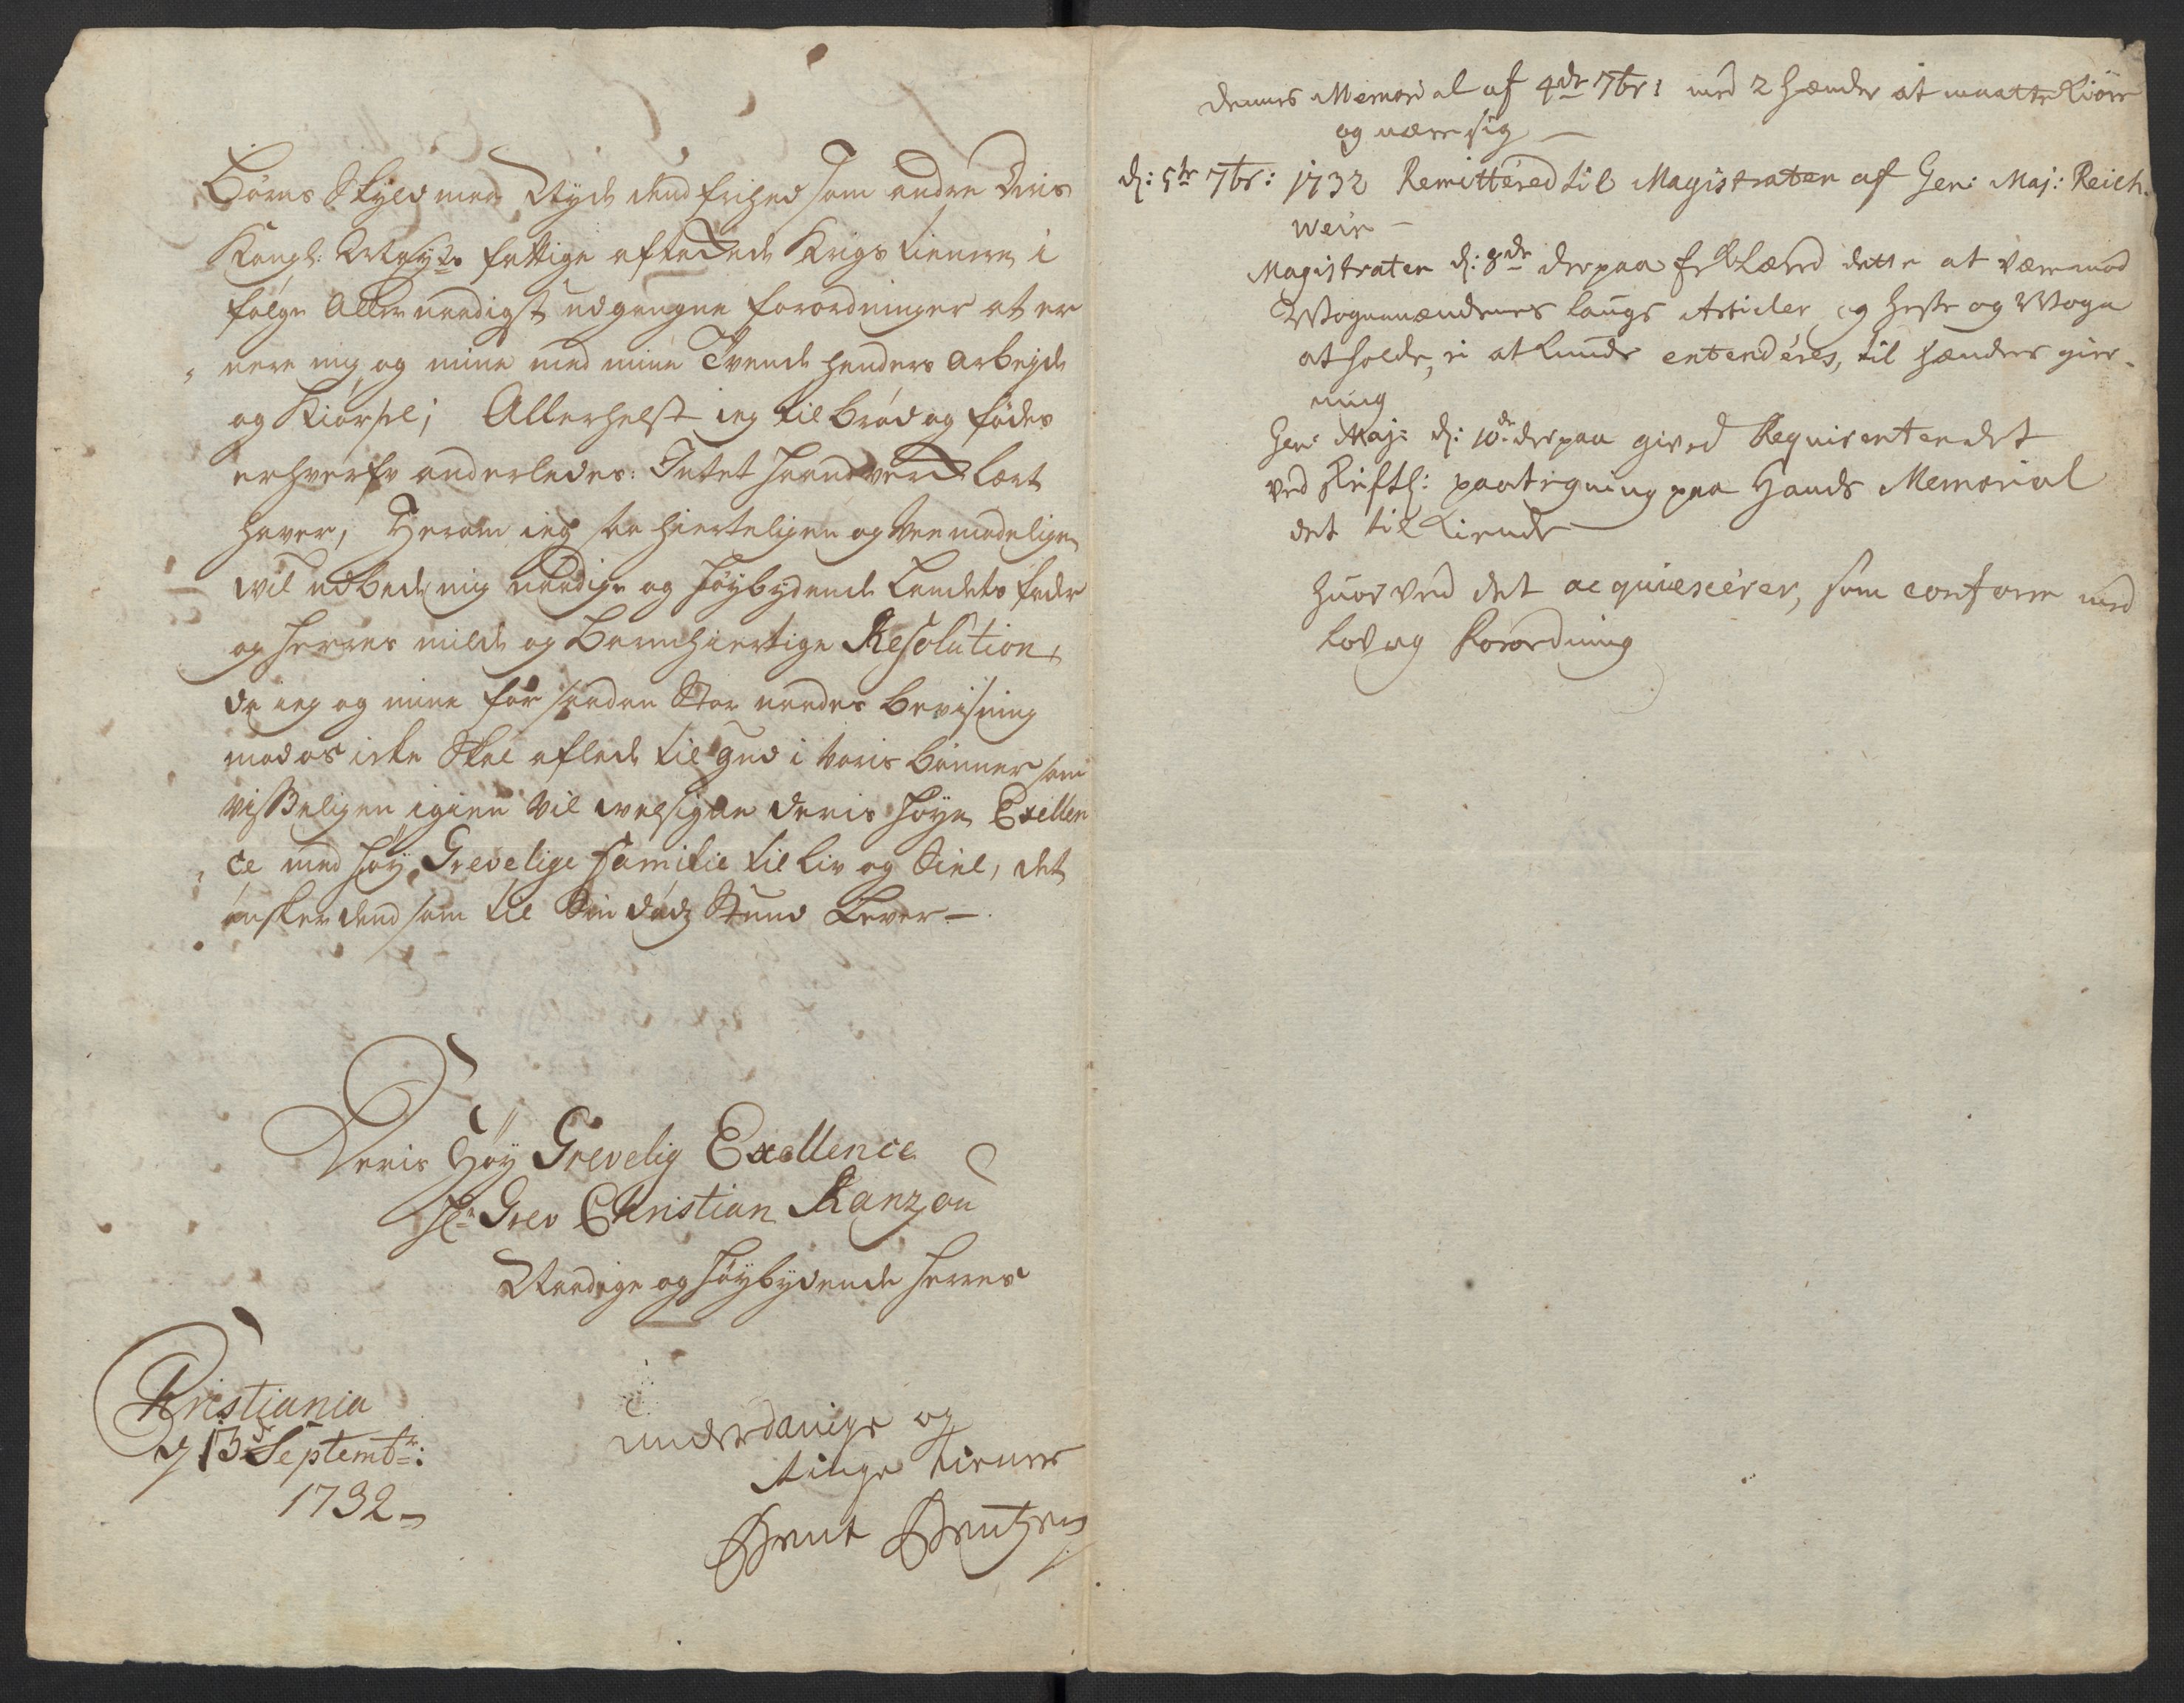 Børns Skyld maa Nyde dend frihed som andre Dris
Kongl: May:ts fattige aftackede Krigs tienere i
følge Allernaadigst udgangne forordninger at er
nere mig og mine med mine Tvende henders arbejde
og Kiørsel; Allerhelst ieg til brød og føde
erhverfv anderledes. Intet Haandverck lært
haver, Herom ieg saa hierteligen og Veemodeligen
vil udbede mig naadige og Høybydende Landets fader
og Herres milde og Barmhiertige Resolution,
da ieg og mine for saadan Stor naades bevisning
mod os icke Skal aflade til Gud i voris bønner som
visseligen igien vil velsigne deris Høye Exellen
ce med Høy Grevelige familie til Liv og Siel, det
ønsker dend som til Sin døds Stund Lever —
Deris Høy Grevelig Exellence
Hr Grev Christian Ranzou
Naadige og Høybydende Herres
Christiania
d 13 Septembr:
1732
underdanige og
ringe tiener
Bent Bentzen
dennes Memorial af 4de 7br: med 2 hænder at maatte Kiøre
og nære sig —
d: 5te 7br: 1732 Remittered til Magistraten af Gen: Maj: Reich
wein —
Magistraten d: 8de derpaa Erklæred dette at være mod
Wognmændenes laugs Articler, og heste og Wogn
at holde, ei at kunde entendéres, til hænders gier
ning
Gen: Maj: d: 10de derpaa gived Requirenten det
ved Skriftl: paategning paa Hands Memorial
det tilkiende
huor ved det acquiescérer, som conform med
Lov og Forordning